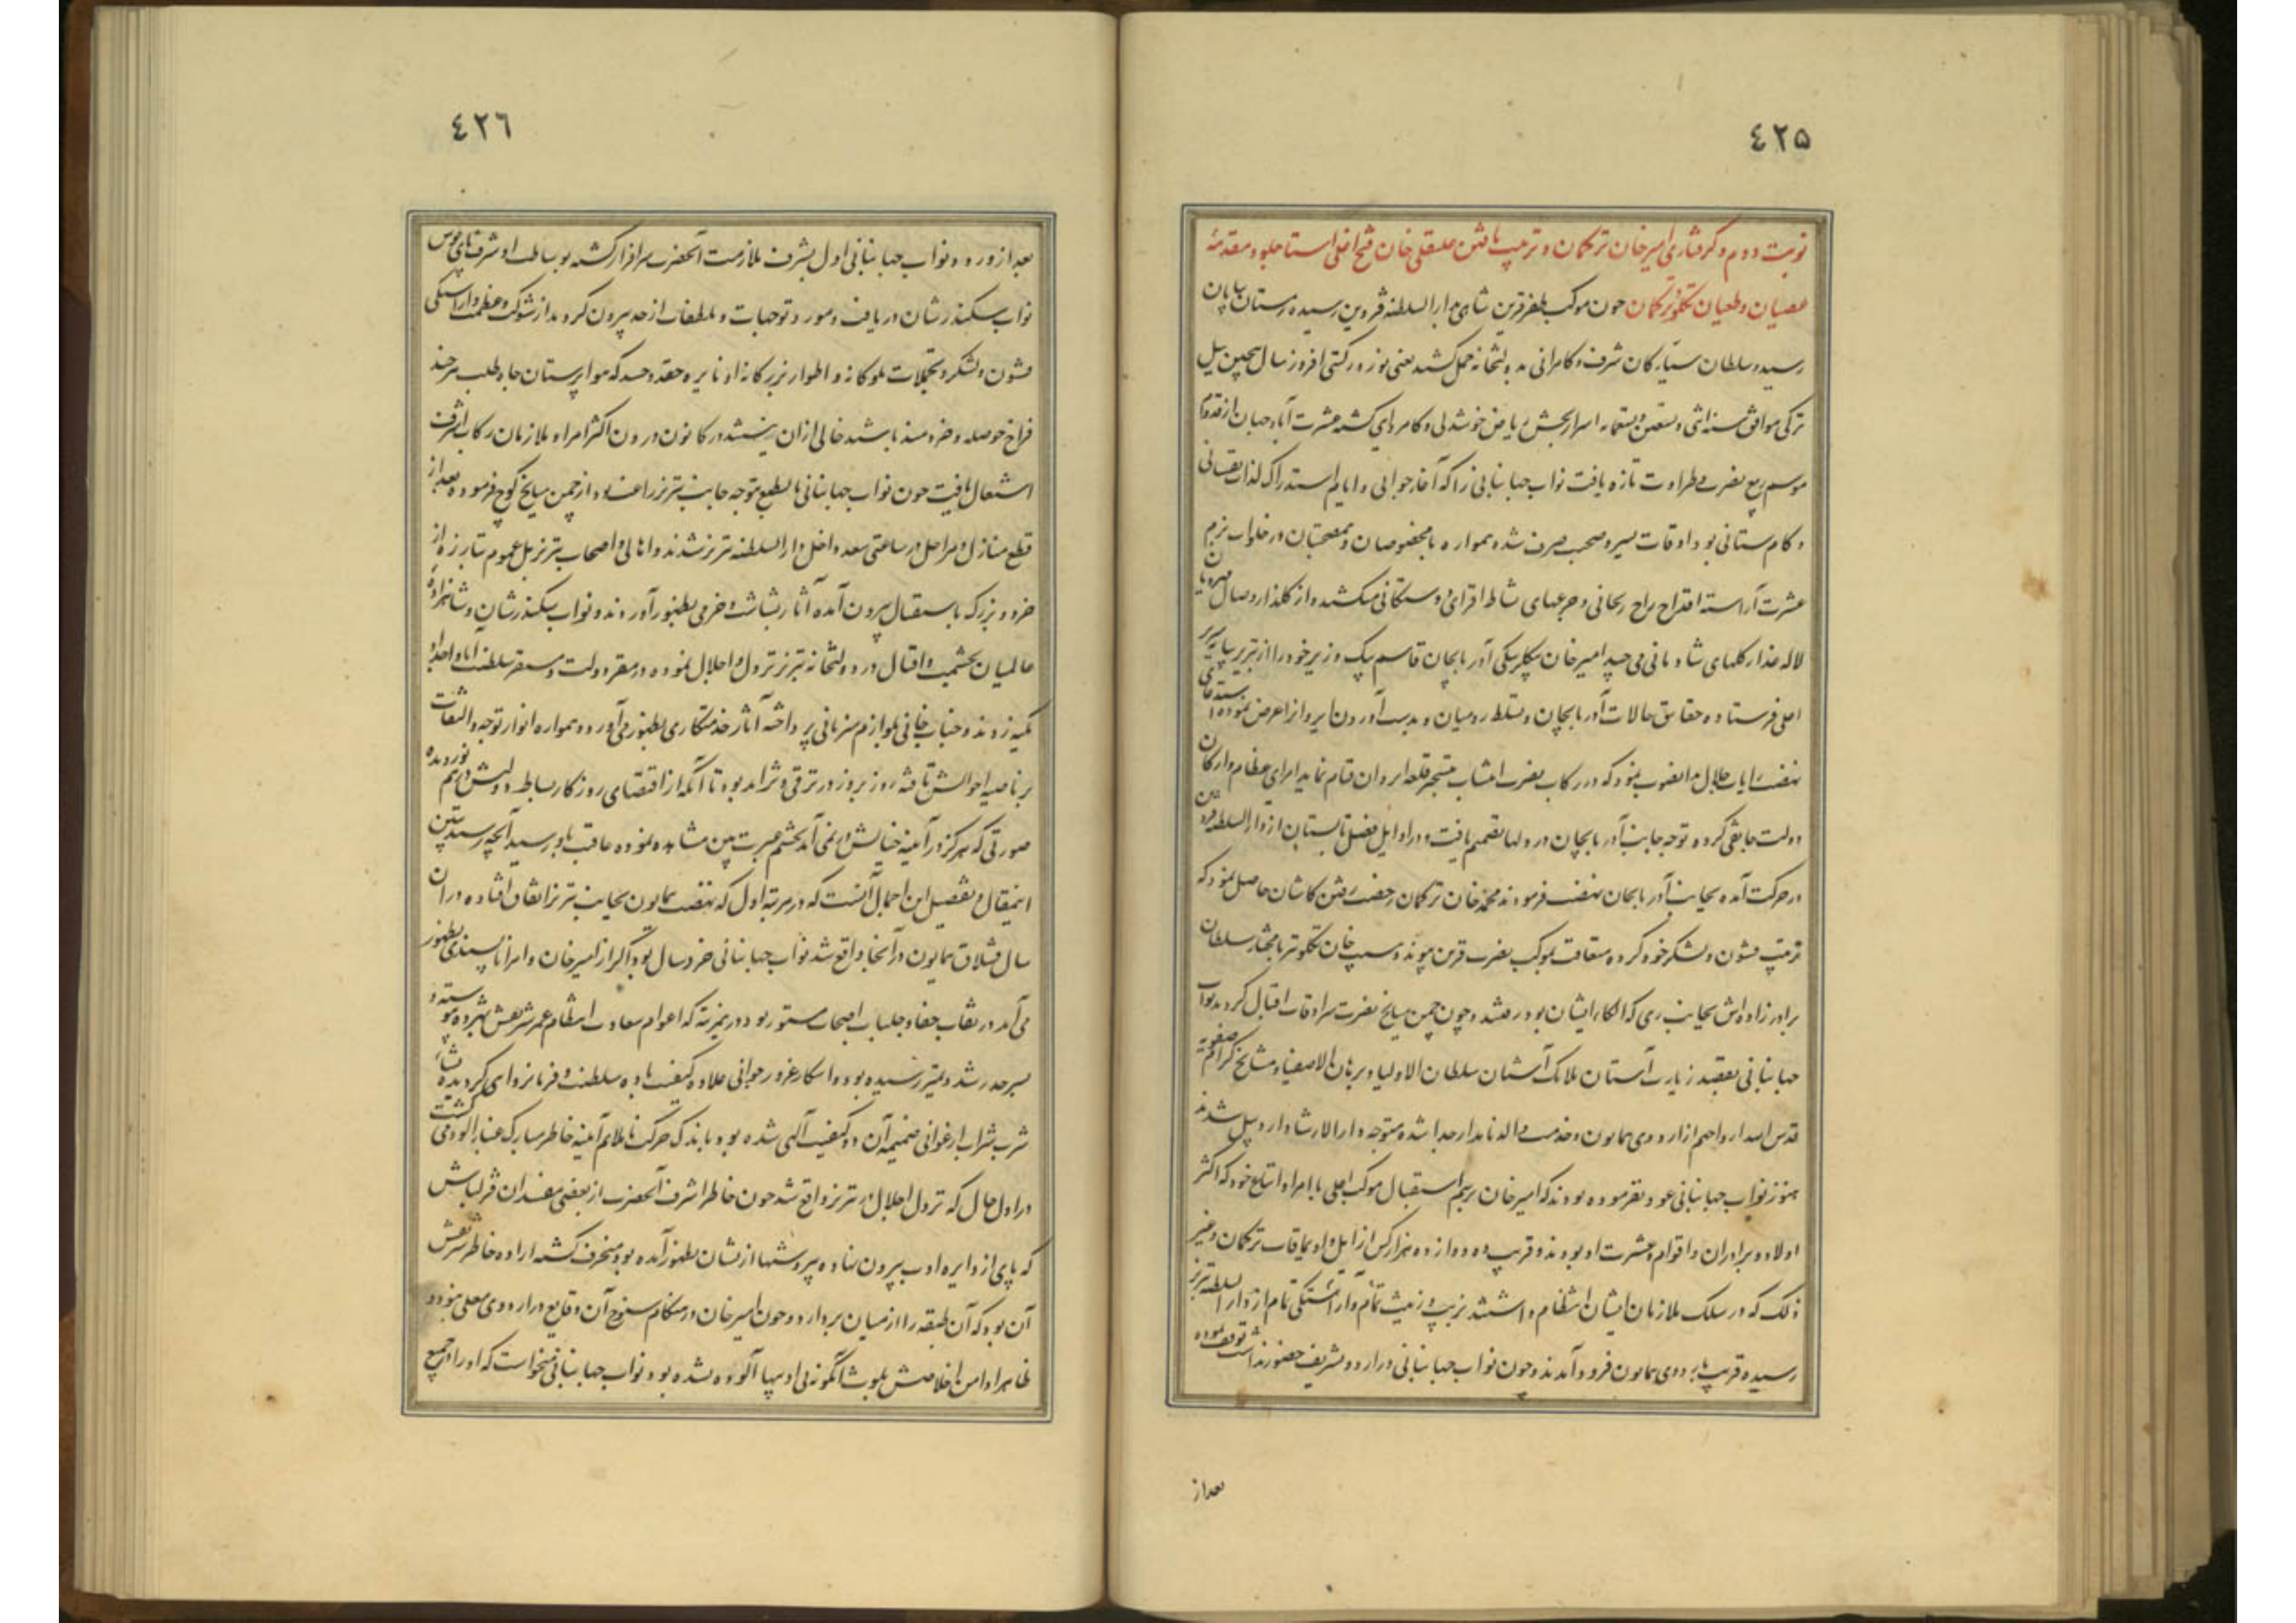 ٤٢۵
نوبت دوم و گرفتاری امیرخان ترکمان و ترتیب یافتن علیقلی خان فتح اغلی استاجلو و مقدمهٔ
عصیان و طغیان تکلو و ترکمان چون موکب ظفر قرین شاهی بدار السلطنه قزوین رسیده زمستان بپایان
رسید و سلطان سیارگان بشرف و کامرانی بدولتخانه حمل کشید یعنی نوروز گیتی افروز سال پیچین ییل
ترکی موافق سنه اثنی و تسعین و تسعمایه اسرار بخش ریاض خوشدلی و کامروای گشته عشرت آباد جهان از قدوم
موسم ربیع نضرت و طراوت تازه یافت نواب جهانبانی را که آغاز جوانی و ایام استدراک لذات نفسانی
و کام ستانی بود اوقات بسیر و صحبت صرف شده همواره با مخصوصان و هم صحبتان در خلوات بزم
عشرت آراسته اقداح راح ریحانی و جرعهای نشاط افزای دوستکانی میکشید و از گلذار وصال مهرویان
لاله عذار گلهای شادمانی می چید امیرخان بیگلربیگی آذربایجان قاسم بیک وزیر خود را از تبریز بپایه سریر
اعلی فرستاده حقایق حالات آذربایجان و تسلط رومیان و بدست آوردن ایروان را عرض نموده استدعای
نهضت رایات جلال بدانصوب نمود که در رکاب نصرت انتساب بتسخیر قلعه ایروان قیام نماید امرای عظام و ارکان
دولت جانقی کرده توجه جانب آذربایجان در دلها تصمیم یافت و در اوایل فصل تابستان از دار السلطنه قزوین
در حرکت آمده بجانب آذربایجان نهضت فرمودند محمد خان ترکمان رخصت رفتن کاشان حاصل نمود که
ترتیب قشون و لشکر خود کرده متعاقب بموکب نصرت قرین پیوندد و مسیب خان تکلو نیز با مختار سلطان
برادرزاده اش بجانب ری که الکاء ایشان بود رفتند و چون چمن میانج نصرت سرادقات اقبال گردید نواب
جهانبانی بقصد زیارت آستان ملائک آشیان سلطان الاولیا و برهان الاصفیا و مشایخ کرام صفویه
قدس الله ارواحهم از اردوی همایون و خدمت والد نامدار جدا شده متوجه دار الارشاد اردبیل شدند
هنوز نواب جهانبانی عود نفرموده بودند که امیرخان برسم استقبال موکب اعلی با امرا و اتباع خود که اکثر
اولاد و برادران و اقوام و عشرت او بودند و قریب ده دوازده هزار کس از ایل و اویماقات ترکمان و غیر
ذلک که در سلک ملازمان ایشان انتظام داشتند بزیب و زینت تمام و آراستگی تمام از دار السلطنه تبریز
رسیده قریب باردوی همایون فرود آمدند و چون نواب جهانبانی در اردو تشریف حضور نداشت توقف نموده
بعد از
٤٢٦
بعد از ورود نواب جهانبانی اول بشرف ملازمت آنحضرت سرافراز گشته بوساطت او شرف پای بوس
نواب سکندر شان دریافت و مورد توجهات و تلطفات از حد بیرون گردید از شوکت و عظمت و آراستگی
قشون و لشکر و تجملات ملوکانه و اطوار بزرگانه او نایره حقد و حسد که هواپرستان جاه طلب هر چند
فراخ حوصله و خردمند باشند خالی از آن نیستند در کانون درون اکثر امرا و ملازمان رکاب اشرف
اشتعال یافت چون نواب جهانبانی بالطبع متوجه جانب تبریز راغب بود از چمن میانج کوچ فرموده بعد از
قطع منازل و مراحل در ساعتی سعد داخل دار السلطنه تبریز شدند و اهالی و اصحاب تبریز بل عموم تبارزه از
خرد و بزرگ باستقبال بیرون آمده آثار بشاشت و خرمی بظهور آوردند و نواب سکندر شان و شاهزادهٔ
عالمیان بحشمت و اقبال در دولتخانه تبریز نزول اجلال نموده در مقر دولت و مستقر سلطنت آبا و اجداد
تکیه زدند و جناب خانی بلوازم میزبانی پرداخته آثار خدمتکاری بظهور می آورد و همواره انوار توجه و التفات
بر ناصیه احوالش تافته روز بروز در ترقی و تزاید بود تا آنکه از اقتضای روزگار بساط دولتش درهم نوردیده
صورتی که هرگز در آیینه خیالش در نمی آمد بچشم عبرت بین مشاهده نموده عاقبت باو رسید آنچه رسید تبیین
این مقال و تفصیل این اجمال آنست که در مرتبه اول که نهضت همایون بجانب تبریز اتفاق افتاده در آن
سال قشلاق همایون در آنجا واقع شد نواب جهانبانی خرد سال بود اگر از امیرخان و امرا ناپسندی بظهور
می آمد در نقاب خفا و جلباب احتجاب مستور بود درین مرتبه که اعوام سعادت انتظام عمر شریفش بنوزده پیوسته
بسرحد رشد و تمیز رسیده بود و اسکار غرور جوانی علاوه کیفیت باده سلطنت و فرمانروای گردیده نشاء
شرب شراب ارغوانی ضمیمه آن دو کیفیت آلهی شده بود و باندک حرکت ناملایم آیینه خاطر مبارک غبار آلود می گشت
در اول حال که نزول اجلال در تبریز واقع شد چون خاطر اشرف آنحضرت از بعضی مفسدان قزلباش
که پای از دایره ادب بیرون نهاده بیروشیها از ایشان بظهور آمده بود منحرف گشته اراده خاطر شریفش
آن بود که آن طبقه را از میان بردارد و چون امیرخان در هنگام سنوح آن وقایع در اردوی معلی نبود و
ظاهرا دامن اخلاصش بلوث اینگونه بی ادبیها آلوده نشده بود نواب جهانبانی میخواست که او را در جمیع